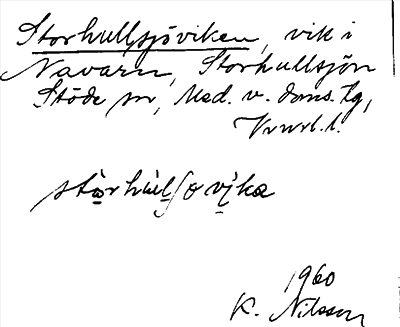 Storhullsjöviken, vik i
Navarn, Storhullsjön
Stöde sn, Med. v. doms. tg,
Vnrl. l.
1960
K. Nilsson